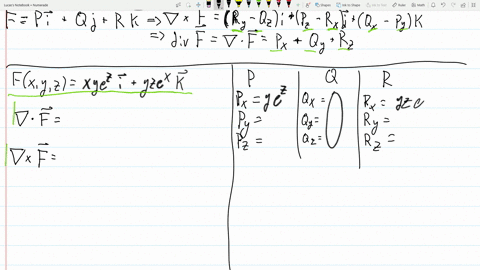 Lucas's Notebook - Numerade
F = P i + Q j + R K ⇒ ∇ × F = (Ry - Qz) i + (Pz - Rx) j + (Qx - Py) K
⇒ div F = ∇ · F = Px + Qy + Rz
F(x,y,z) = xye^z i + yze^x K
P Q R
∇ · F =
Px = ye^z Qx = 0 Rx = yze
Py = Qy = Ry =
Pz = Qz = Rz =
∇ × F =